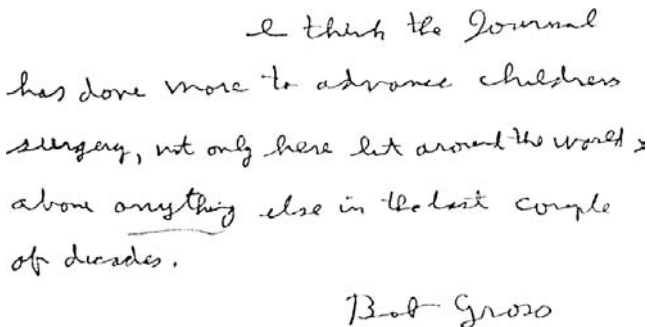 I think the Journal
has done more to advance childrens
surgery, not only here but around the world,
above anything else in the last couple
of decades.
Bob Gross